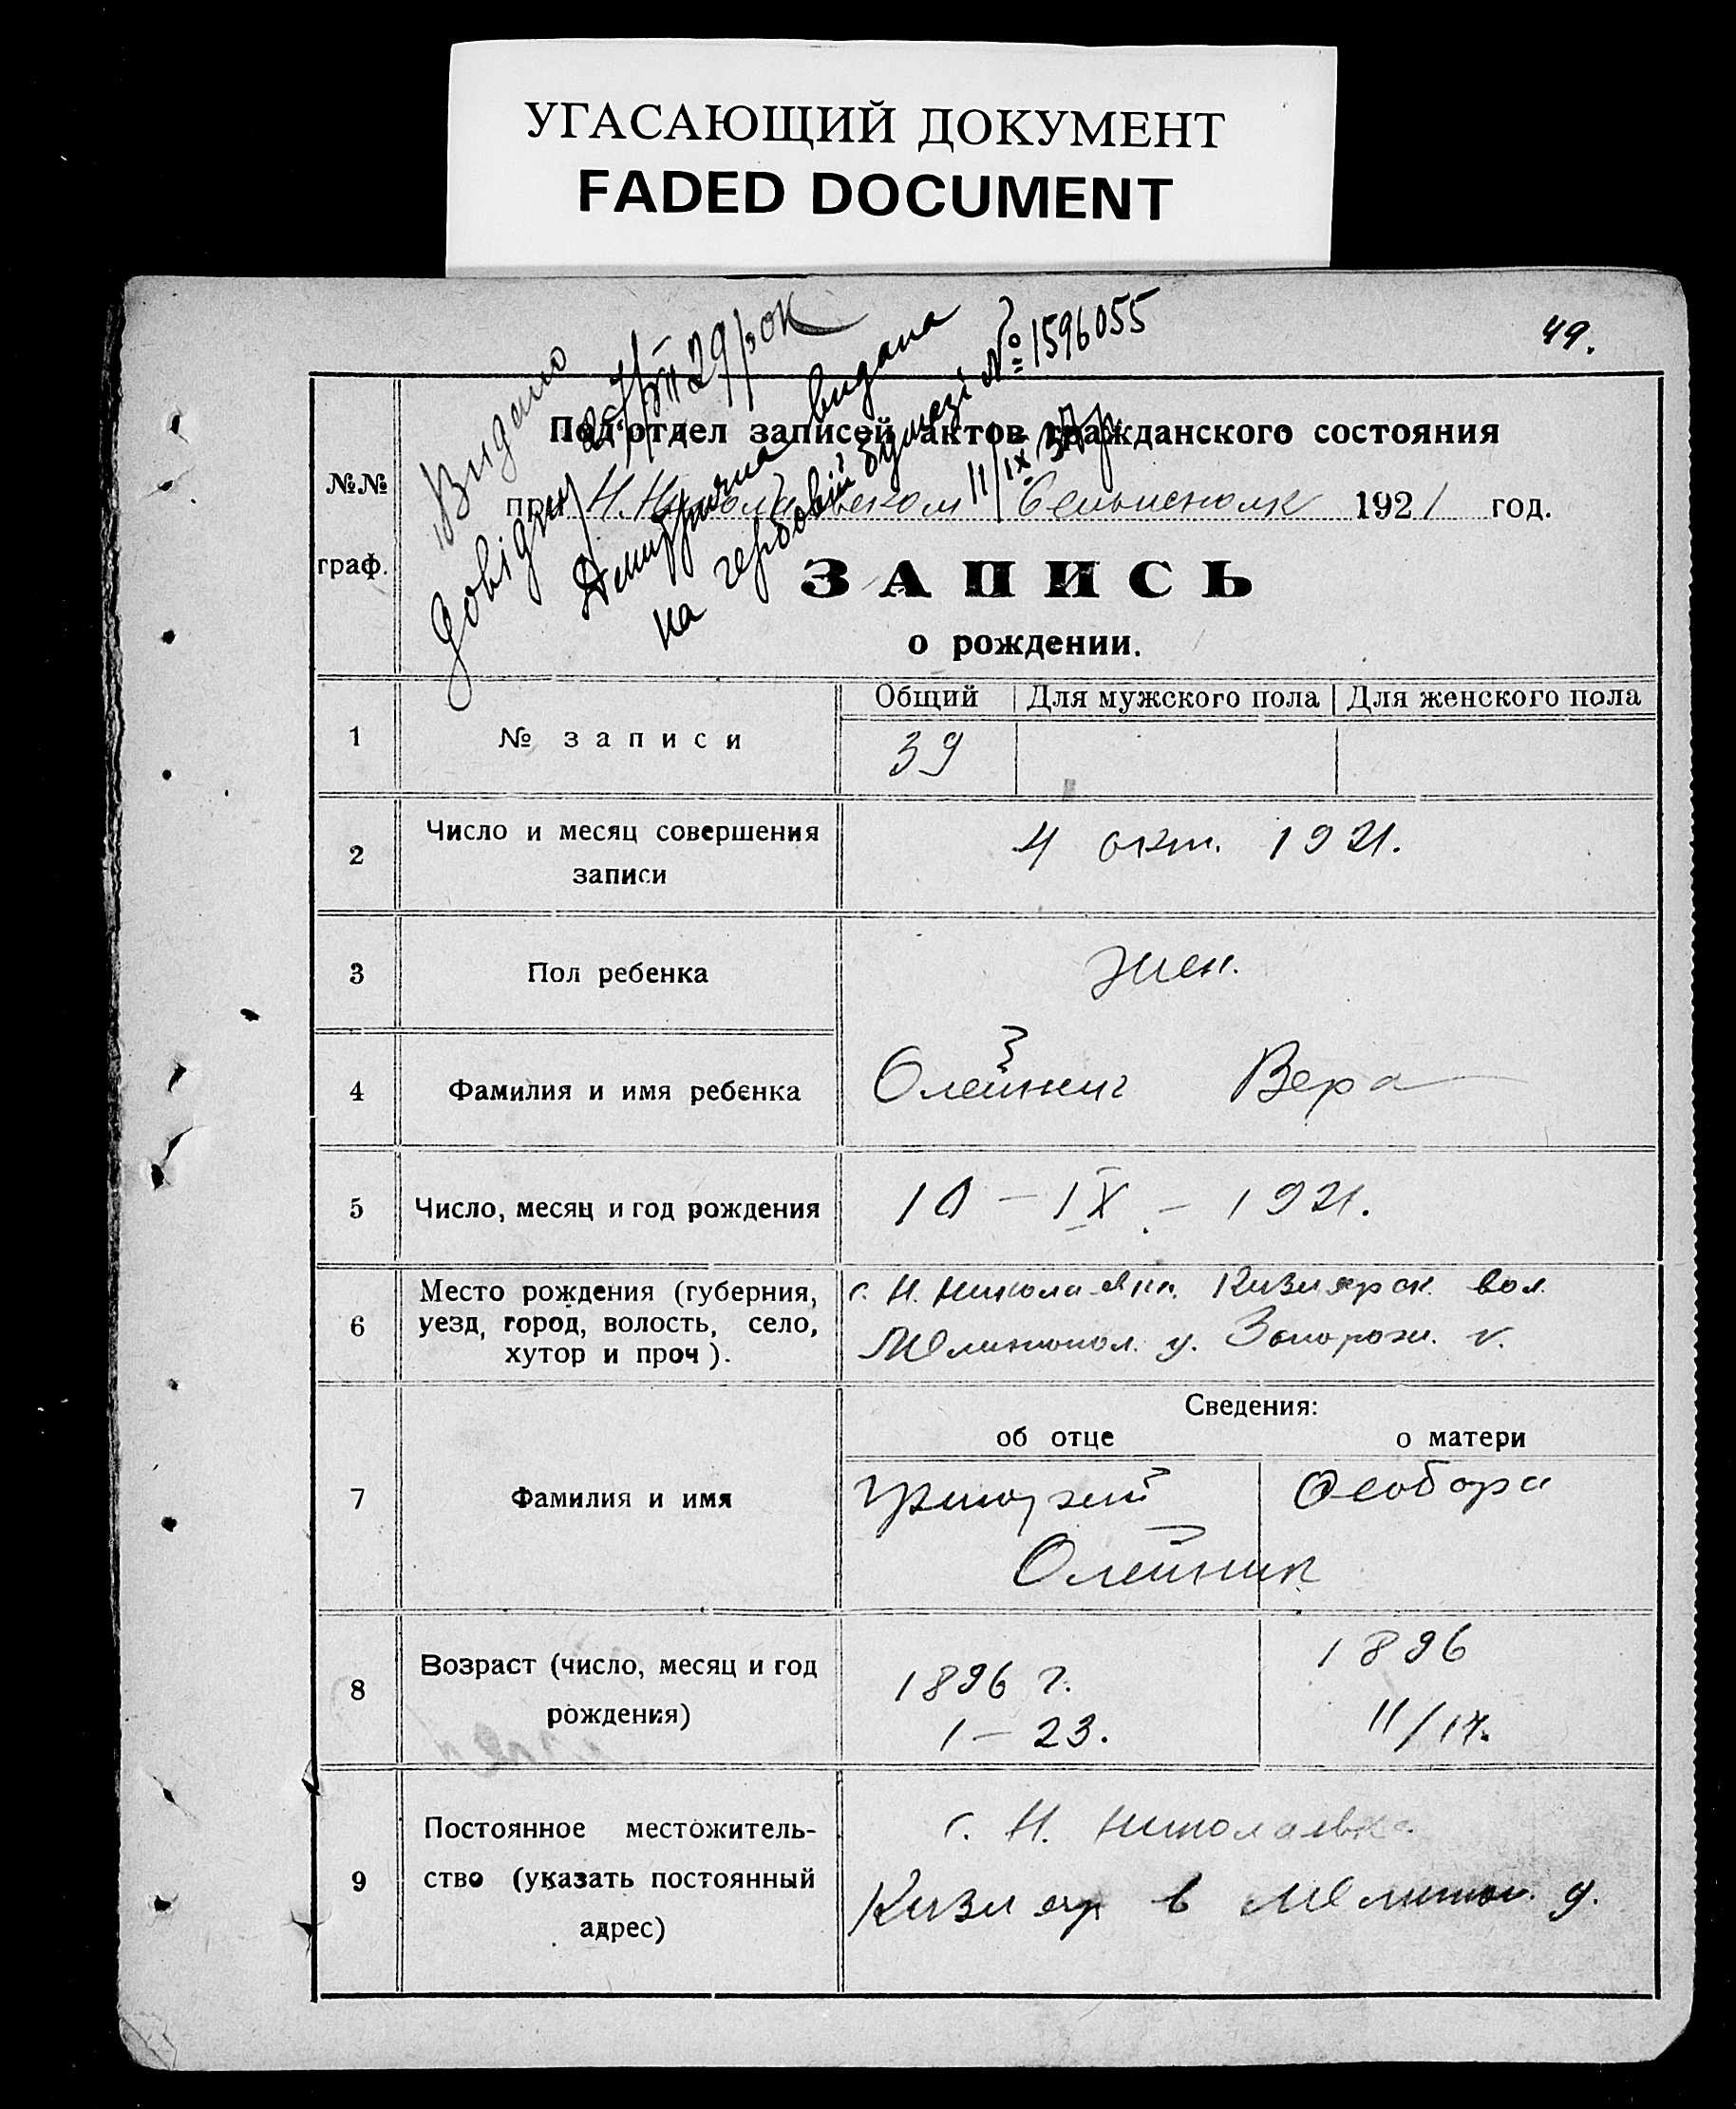 УГАСАЮЩИЙ ДОКУМЕНТ
FADED DOCUMENT
49.
Видано
довідку 29 рок
видана
на гербовій бумазі № 1596055
11/IX
№№
граф.
Под'отдел записей актов гражданского состояния
при Н. Николаевском 1921 год.
ЗАПИСЬ
о рождении.
Общий Для мужского пола Для женского пола
1 № записи 39
2 Число и месяц совершения
записи
4 окт. 1921.
3 Пол ребенка жен.
4 Фамилия и имя ребенка Олейник Вера
5 Число, месяц и год рождения 10 – IX – 1921.
6 Место рождения (губерния,
уезд, город, волость, село,
хутор и проч).
с. Н. Николаевк. Кизиярск. вол.
Мелитопол. у. Запорож. г.
Сведения:
об отце о матери
7 Фамилия и имя Григорий Феодора
Олейник
8 Возраст (число, месяц и год
рождения)
1896 г. 1896
1 – 23. 11/17.
9 Постоянное местожитель-
ство (указать постоянный
адрес)
с. Н. Николаевка
Кизияр в Мелитоп. у.